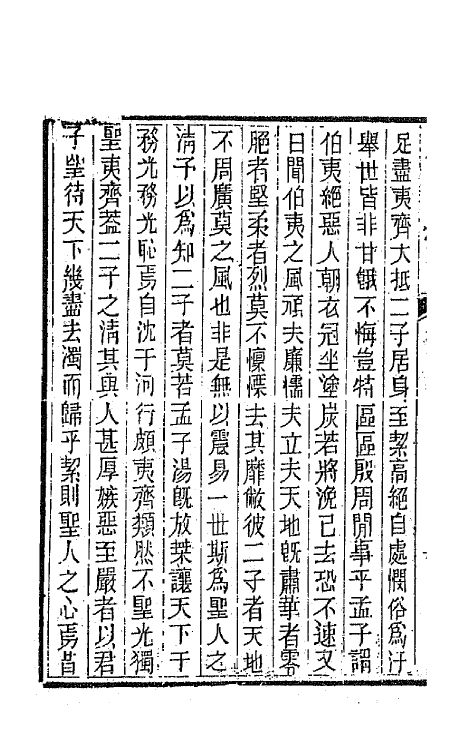 足盡夷齊大抵二子居身至絜高絕自處憫俗爲汙
舉世皆非甘餓不悔豈特區區殷周閒事乎孟子謂
伯夷絕惡人朝衣冠坐塗炭若將浼已去恐不速又
曰聞伯夷之風頑夫廉懦夫立夫天地旣肅華者零
脃者堅柔者烈莫不懍慄去其靡敝彼二子者天地
不周廣莫之風也非是無以震易一世斯爲聖人之
淸予以爲知二子者莫若孟子湯旣放桀讓天下于
務光務光恥焉自沈于河行頗夷齊類然不聖光獨
聖夷齊葢二子之淸其與人甚厚嫉惡至嚴者以君
子望待天下幾盡去濁而歸乎絜則聖人之心焉昔